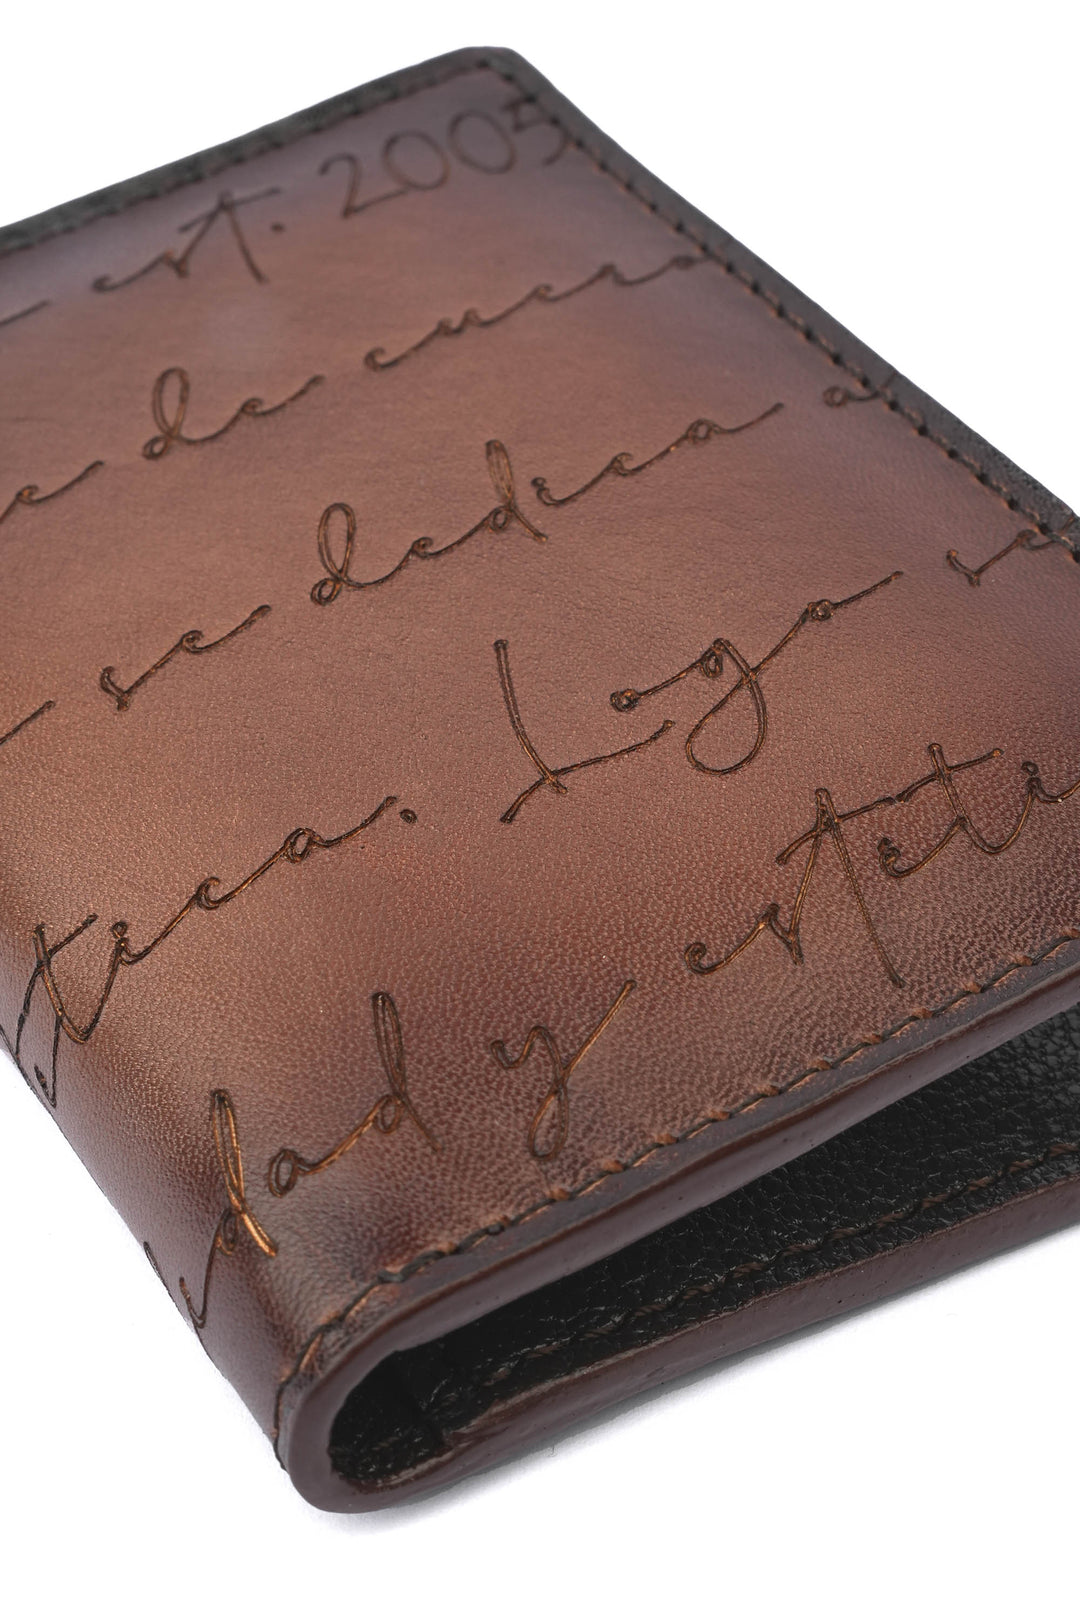 est. 2005
de cuero
se dedica a
tica. Lgo
dad y estéti